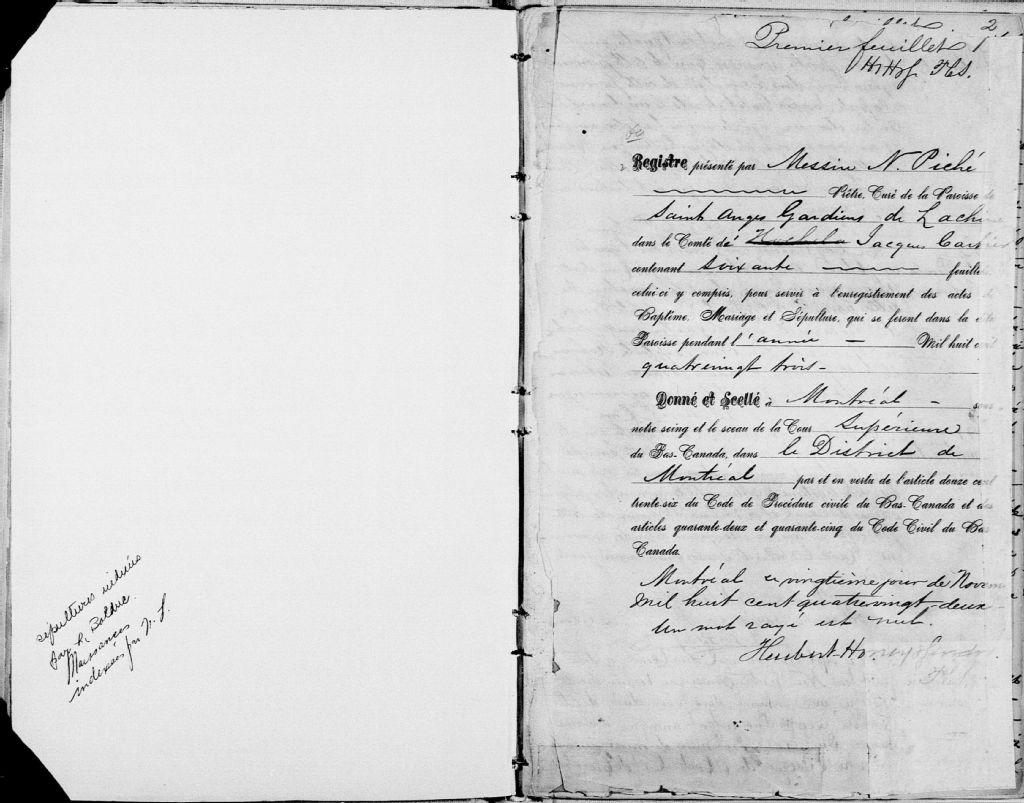 sépultures indexées
par R. Bolduc
Naissances
indexées par N. L.
2
Premier feuillet 1
Registre présenté par Messire N. Piché
Prêtre, Curé de la Paroisse de
Saint Anges Gardiens de Lachine
dans le Comté de Jacques Cartier
contenant soixante feuillets
celui-ci y compris, pour servir à l'enregistrement des actes de
Baptême, Mariage et Sépulture, qui se feront dans la dite
Paroisse pendant l'année — Mil huit cent
quatrevingt trois -
Donné et Scellé à Montréal - sous
notre seing et le sceau de la Cour Supérieure
du Bas-Canada, dans le District de
Montréal par et en vertu de l'article douze cent
trente-six du Code de Procédure civile du Bas-Canada et des
articles quarante-deux et quarante-cinq du Code Civil du Bas
Canada.
Montréal ce vingtième jour de Novem
mil huit cent quatrevingt-deux
Un mot rayé est nul.